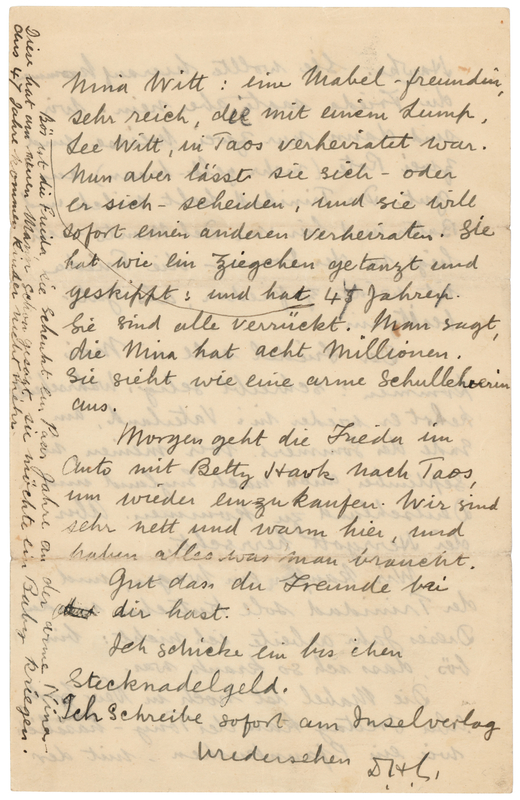 Nina Witt: eine Mabel-freundin,
sehr reich, die mit einem Lump,
Lee Witt, in Taos verheiratet war.
Nun aber lässt sie sich - oder
er sich - scheiden, und sie will
sofort einen anderen verheiraten. Sie
hat wie ein Ziegchen getanzt und
geskippt: und hat 45 Jahren.
Sie sind alle verrückt. Man sagt,
die Nina hat acht Millionen.
Sie sieht wie eine arme Schullehrerin
aus.
Morgen geht die Frieda im
Auto mit Betty Hawk nach Taos,
um wieder einzukaufen. Wir sind
sehr nett und warm hier, und
haben alles was man braucht.
Gut dass du Freunde bei
dir hast.
Ich schicke ein bis chen
Stecknadelgeld.
Ich schreibe sofort am Inselverlag
Wiedersehen D.H.L.
Bös ist die Frieda, die schenkt ein Paar Jahre an die arme Nina.
Diese hat am neuen Mann schon gesagt, sie möchte ein Baby kriegen.
Aus 47 Jahre kommen Kinder nicht mehr.